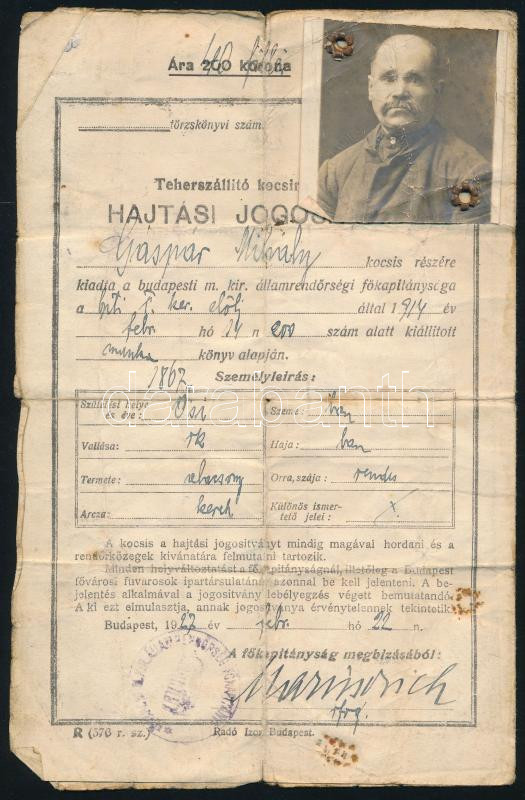 Ára 200 korona
törzskönyvi szám.
Teherszállító kocsi
HAJTÁSI JOGOS
Gáspár Mihály kocsis részére
kiadja a budapesti m. kir. államrendőrségi főkapitánysága
a bpti X. ker. elölj által 1914 év
febr. hó 24 n 200 szám alatt kiállitott
munka könyv alapján.
1867 Személyleirás:
Születési helye és éve: Ősi
Szeme: barn
Vallása: rk
Haja: barn
Termete: alacsony
Orra, szája: rendes
Arcza: kerek
Különös ismertető jelei: x
A kocsis a hajtási jogositványt mindig magával hordani és a
rendőrközegek kivánatára felmutatni tartozik.
Minden helyváltoztatást a főkapitányságnál, illetőleg a Budapest
fővárosi fuvarosok ipartársulatánál azonnal be kell jelenteni. A be-
jelentés alkalmával a jogositvány lebélyegzés végett bemutatandó.
A ki ezt elmulasztja, annak jogositványa érvénytelennek tekintetik.
Budapest, 1927 év febr. hó 22 n.
A főkapitányság megbizásából:
R (576 r. sz.) Radó Izor Budapest.
darabanth